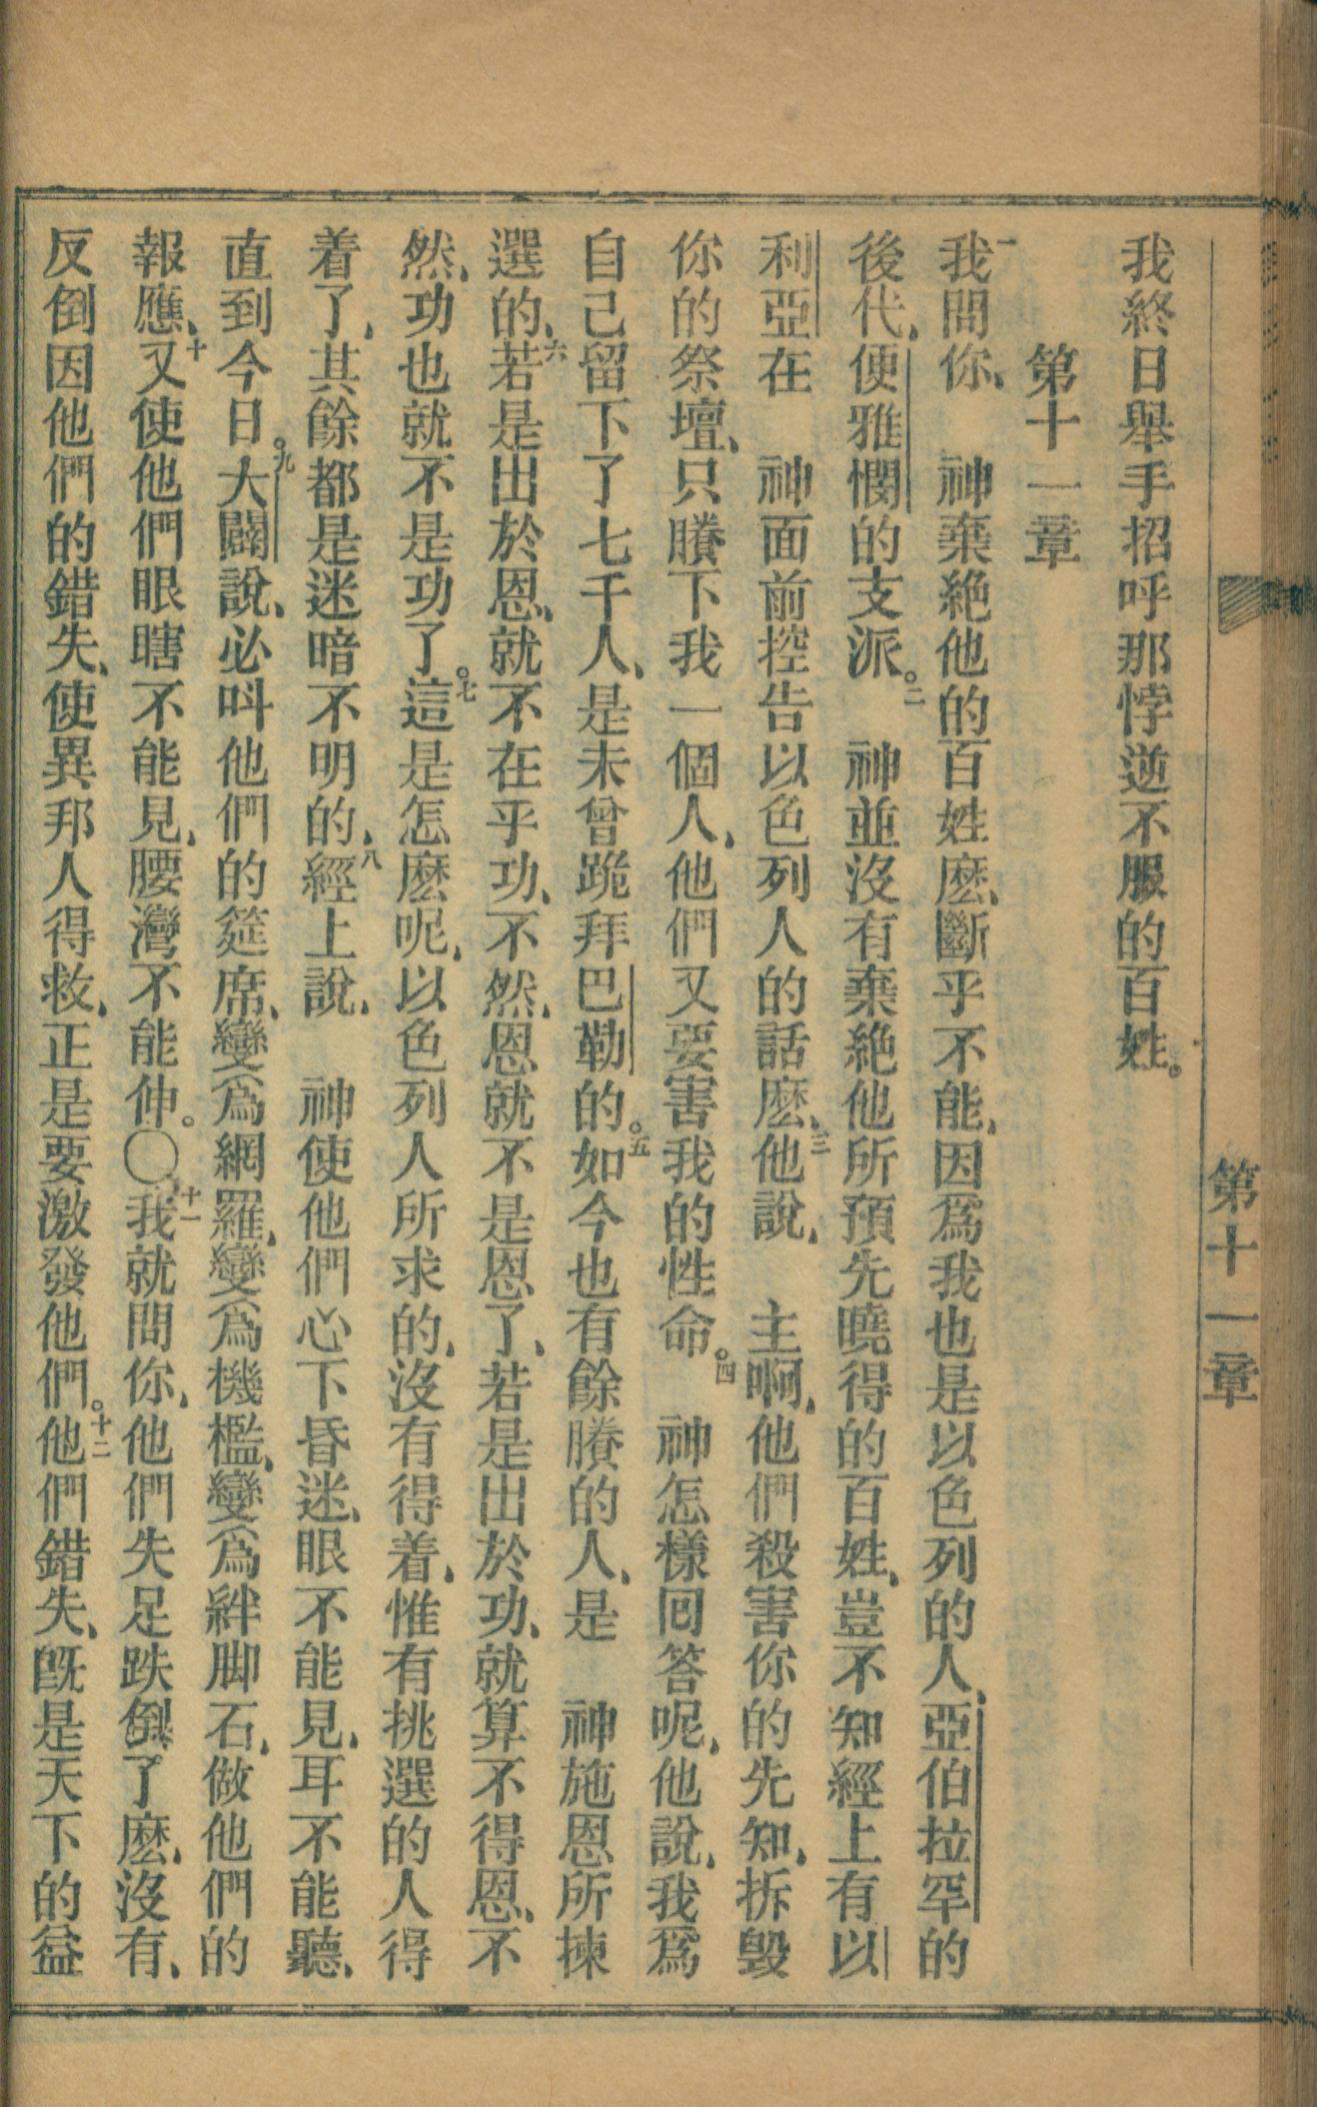 第十一章
我終日舉手招呼那悖逆不服的百姓。
第十一章
一我問你、　神棄絕他的百姓麽、斷乎不能、因爲我也是以色列的人、亞伯拉罕的
後代、便雅憫的支派。二　神並沒有棄絕他所預先曉得的百姓、豈不知經上有以
利亞在　神面前控告以色列人的話麽、三他說、　主啊、他們殺害你的先知、拆毀
你的祭壇、只賸下我一個人、他們又要害我的性命。四　神怎樣回答呢、他說、我爲
自己留下了七千人、是未曾跪拜巴勒的。五如今也有餘賸的人、是　神施恩所揀
選的、六若是出於恩、就不在乎功、不然、恩就不是恩了、若是出於功、就算不得恩、不
然、功也就不是功了。七這是怎麽呢、以色列人所求的、沒有得着、惟有挑選的人得
着了、其餘都是迷暗不明的、八經上說、　神使他們心下昏迷、眼不能見、耳不能聽、
直到今日。九大闢說、必呌他們的筵席、變爲網羅、變爲機檻、變爲絆脚石、做他們的
報應、十又使他們眼瞎不能見、腰灣不能伸。〇十一我就問你、他們失足跌倒了麽、沒有、
反倒因他們的錯失、使異邦人得救、正是要激發他們。十二他們錯失、旣是天下的益